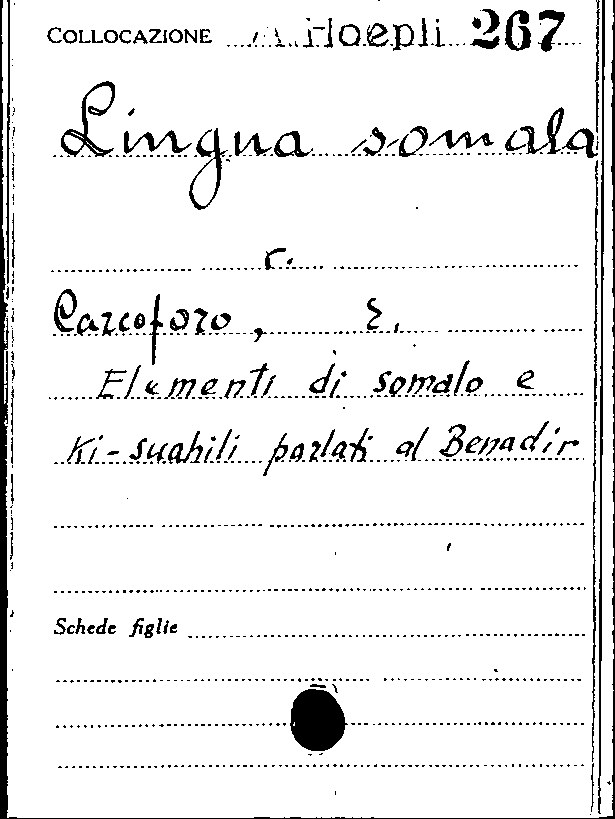 COLLOCAZIONE A. Hoepli 267
Lingua somala
r.
Carcoforo, E.
Elementi di somalo e
Ki-suahili parlati al Benadir
Schede figlie